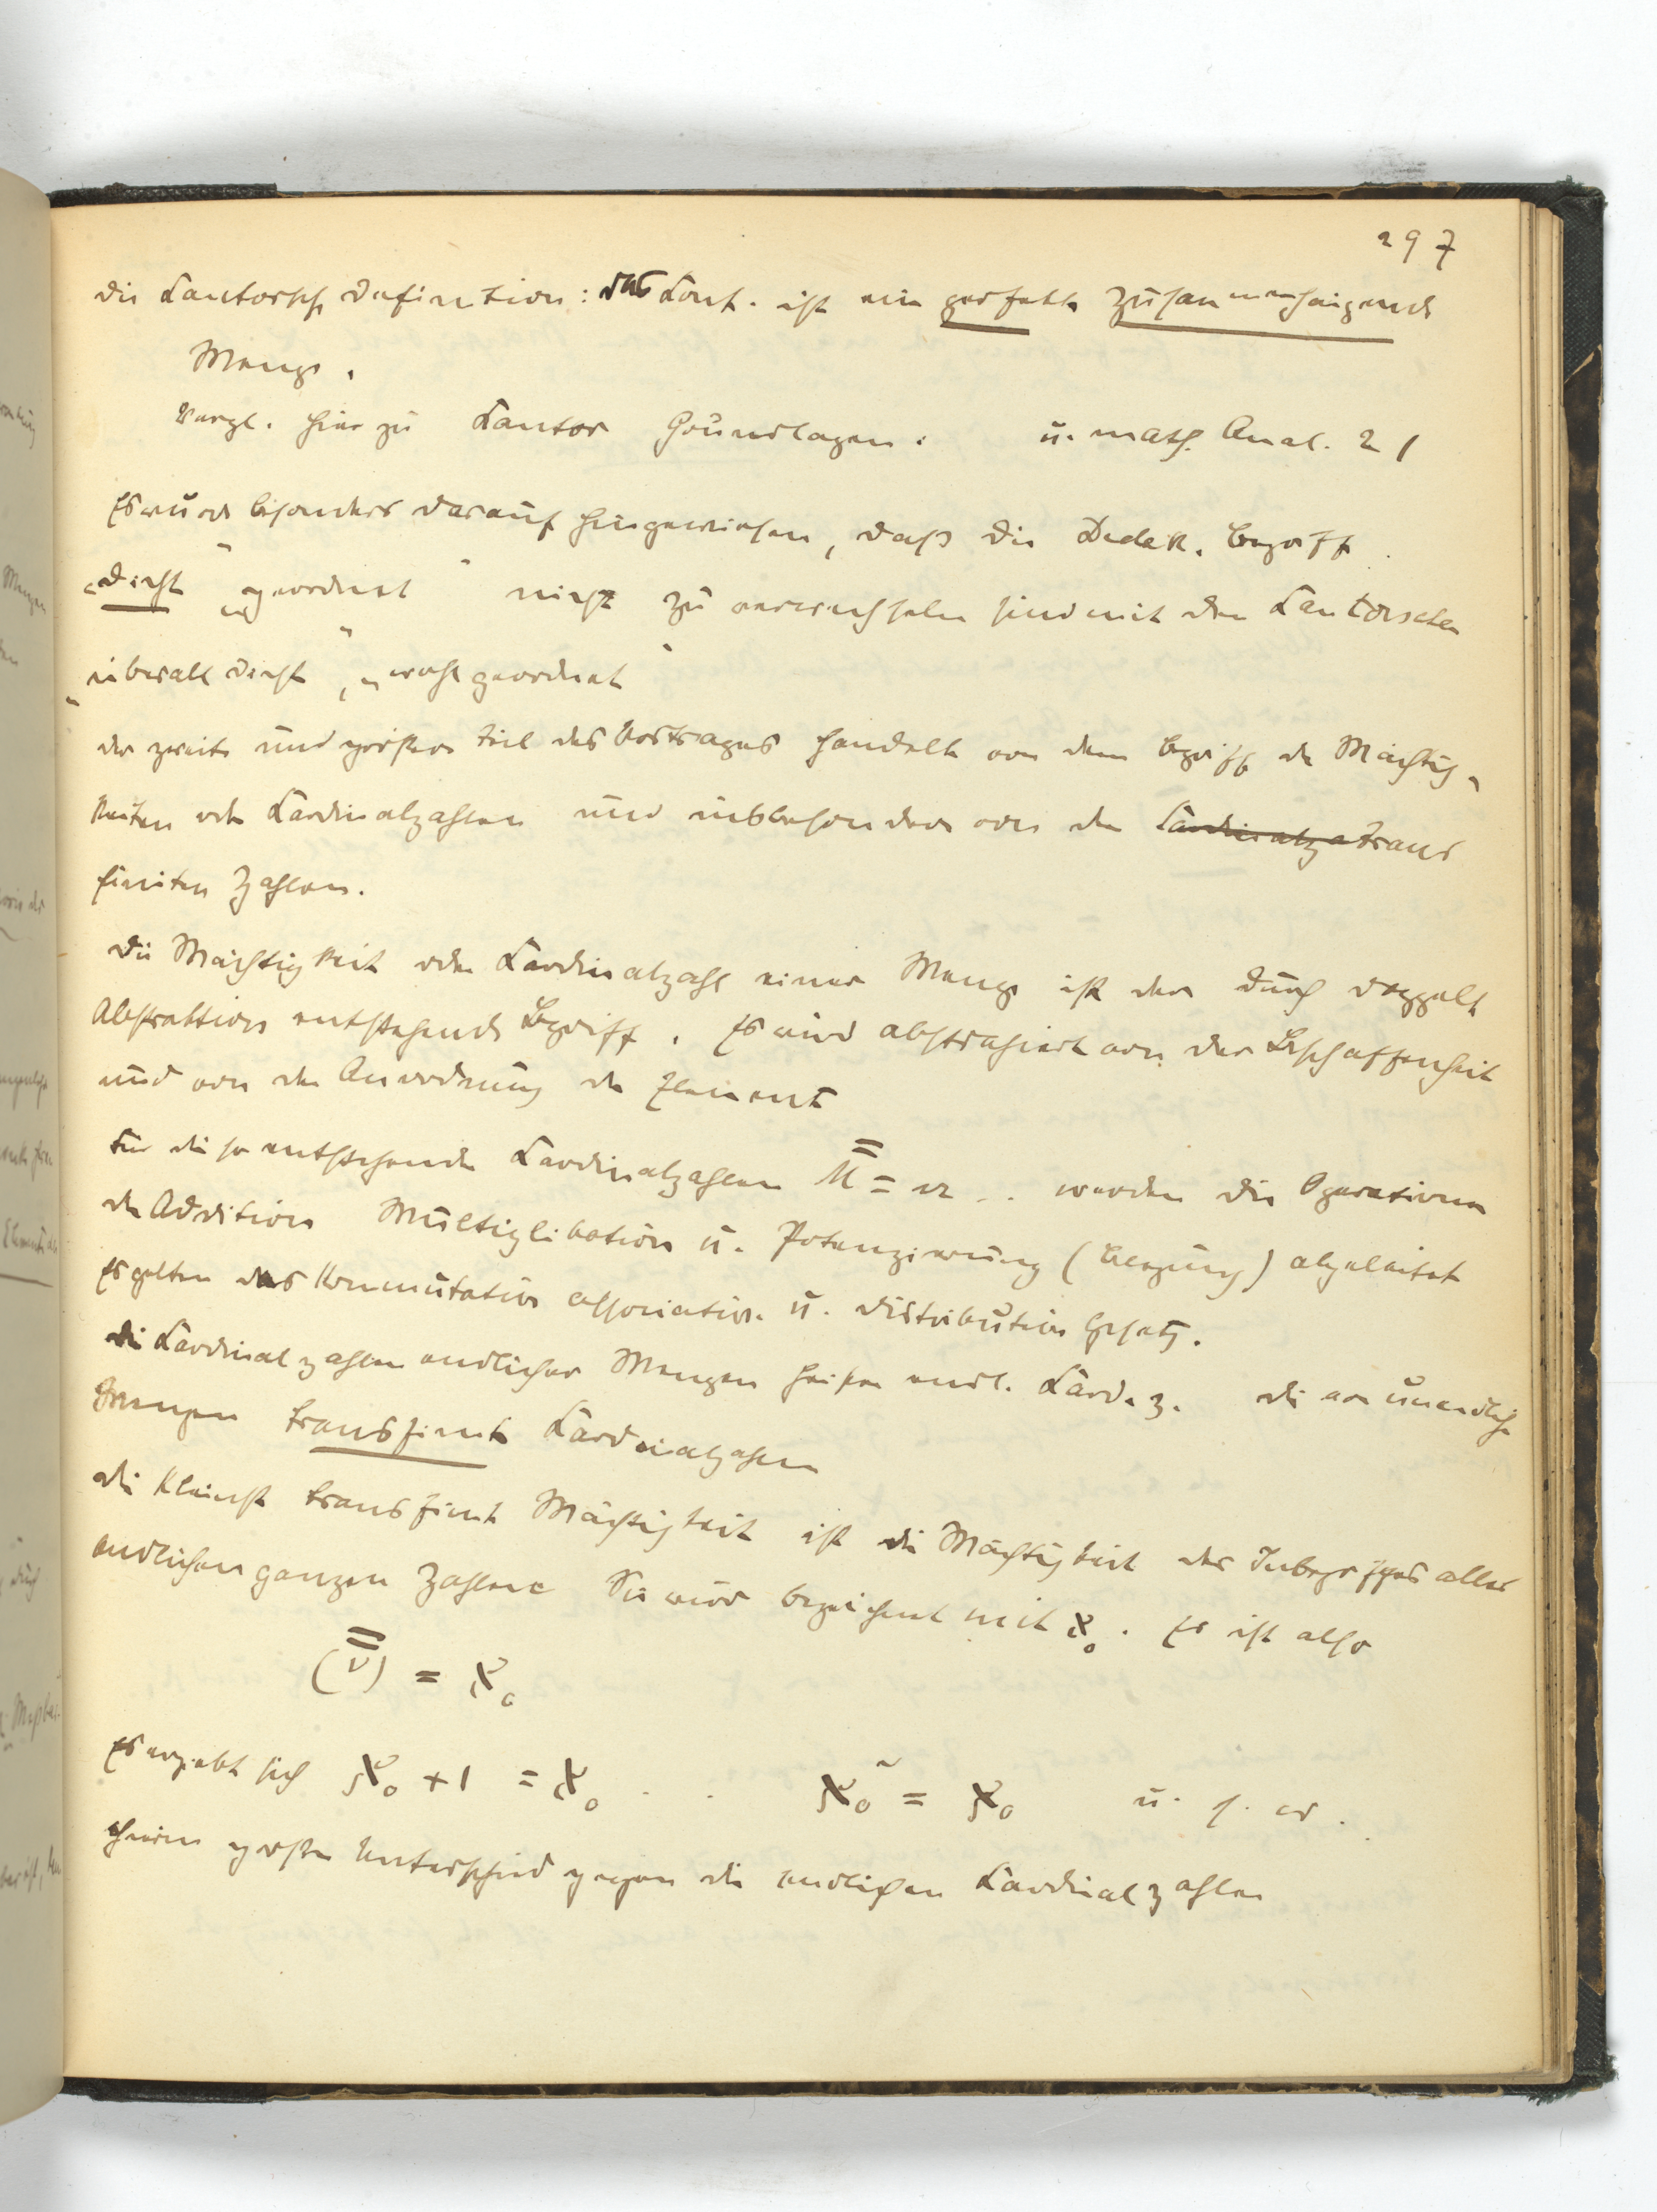 297
die Cantorsche Definition: das Cont. ist eine perfekte zusammenhängende
Menge.
Vergl. hierzu Cantor Grundlagen. u. math. Anal. 21
Es wurde besonders darauf hingewiesen, daß die Dedek. Begriffe
„dicht" „geordnet" nicht zu verwechseln sind mit den Cantorschen
„überall dicht", „wohlgeordnet"
der zweite und größere Teil des Vortrages handelte von dem Begriff der Mächtig-
keiten oder Cardinalzahlen und insbesondere von den Cardinalza trans
finiten Zahlen.
Die Mächtigkeit oder Cardinalzahl einer Menge ist der durch doppelte
Abstraktion entstehende Begriff. Es wird abstrahiert von der Beschaffenheit
und von der Anordnung der Elemente
Für die so entstehenden Cardinalzahlen M̿ = m .. werden die Operationen
der Addition Multiplikation u. Potenzierung (Belegung) abgeleitet
Es gelten das Kommutative associative u. distributive Gesetz.
Die Cardinalzahlen endlicher Mengen heißen endl. Card. z. die von unendlichen
Mengen transfinite Cardinalzahlen
die kleinste transfinite Mächtigkeit ist die Mächtigkeit des Inbegriffes aller
endlichen ganzen Zahlen Sie wird bezeichnet mit ℵ₀. Es ist also
(ν̿) = ℵ₀
Es ergiebt sich ℵ₀ + 1 = ℵ₀ . . ℵ₀² = ℵ₀ u. s. w.
hierin großer Unterschied gegen die endlichen Cardinalzahlen